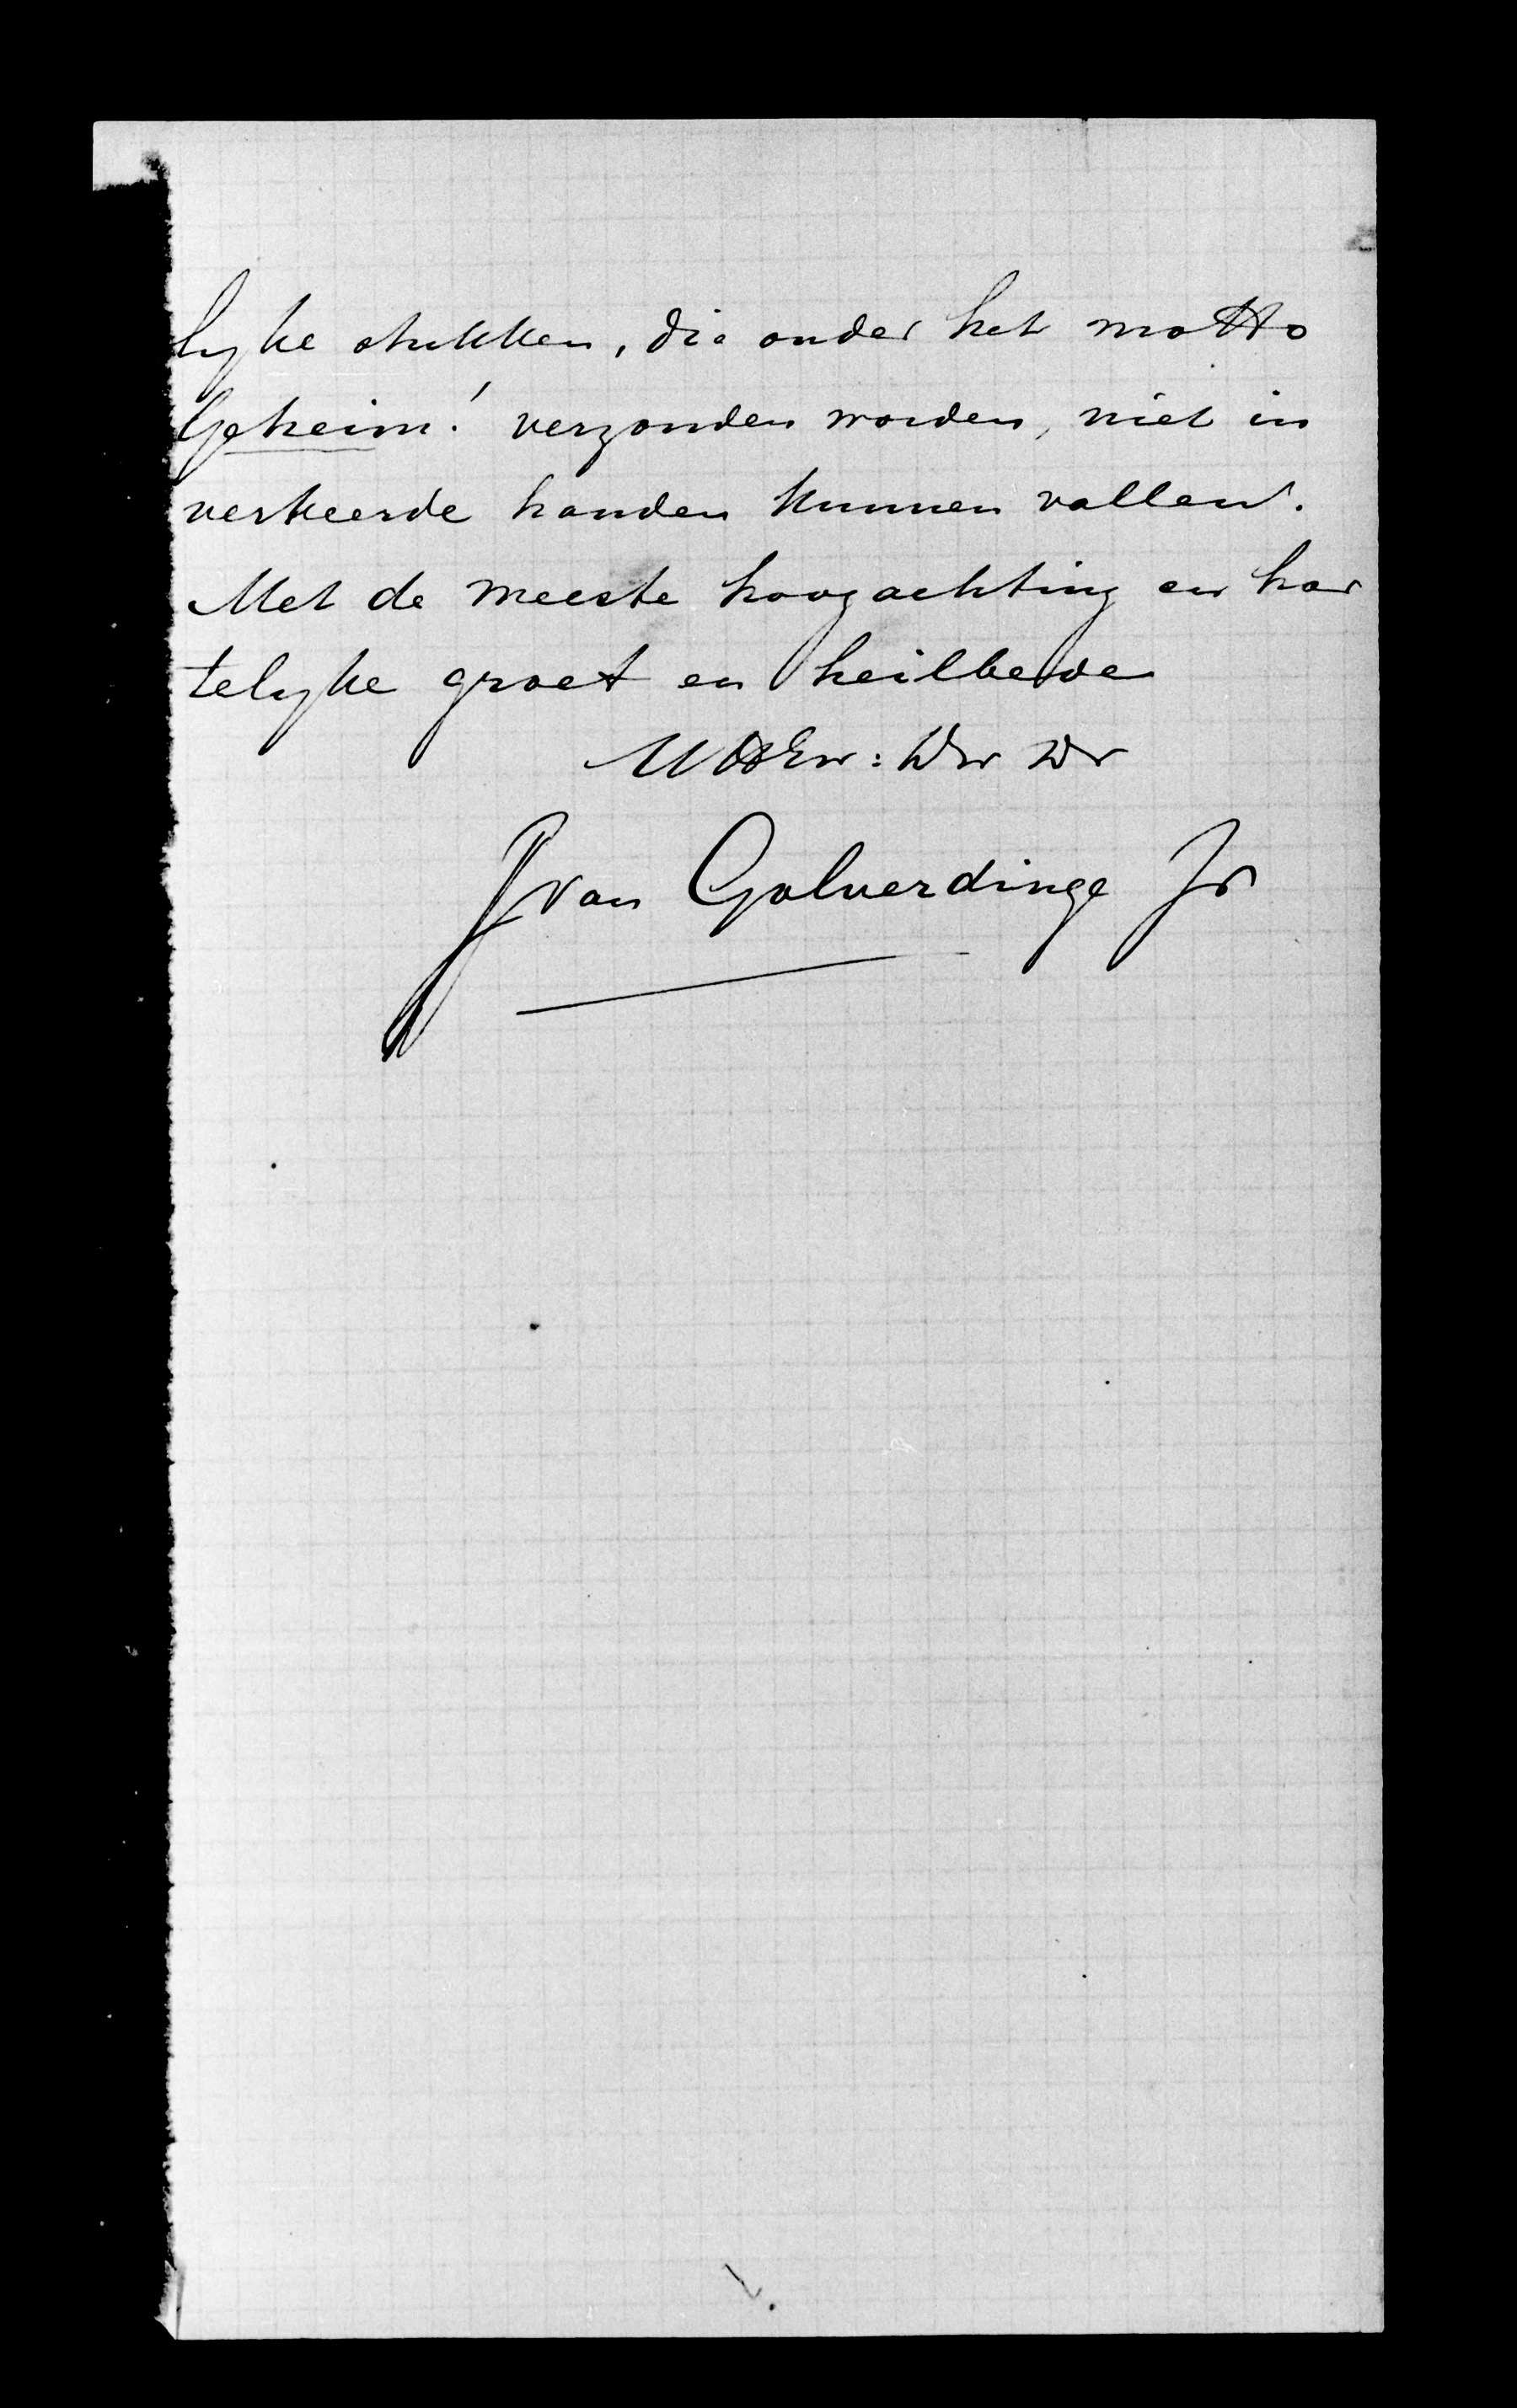 lyke stukken, die onder het motto
Geheim! verzonden worden, niet in
verkeerde handen kunnen vallen.
Met de meeste hoogachting en har
telyke groet en heilbede
UWEw: Dw Dr
J van Golverdinge Jr